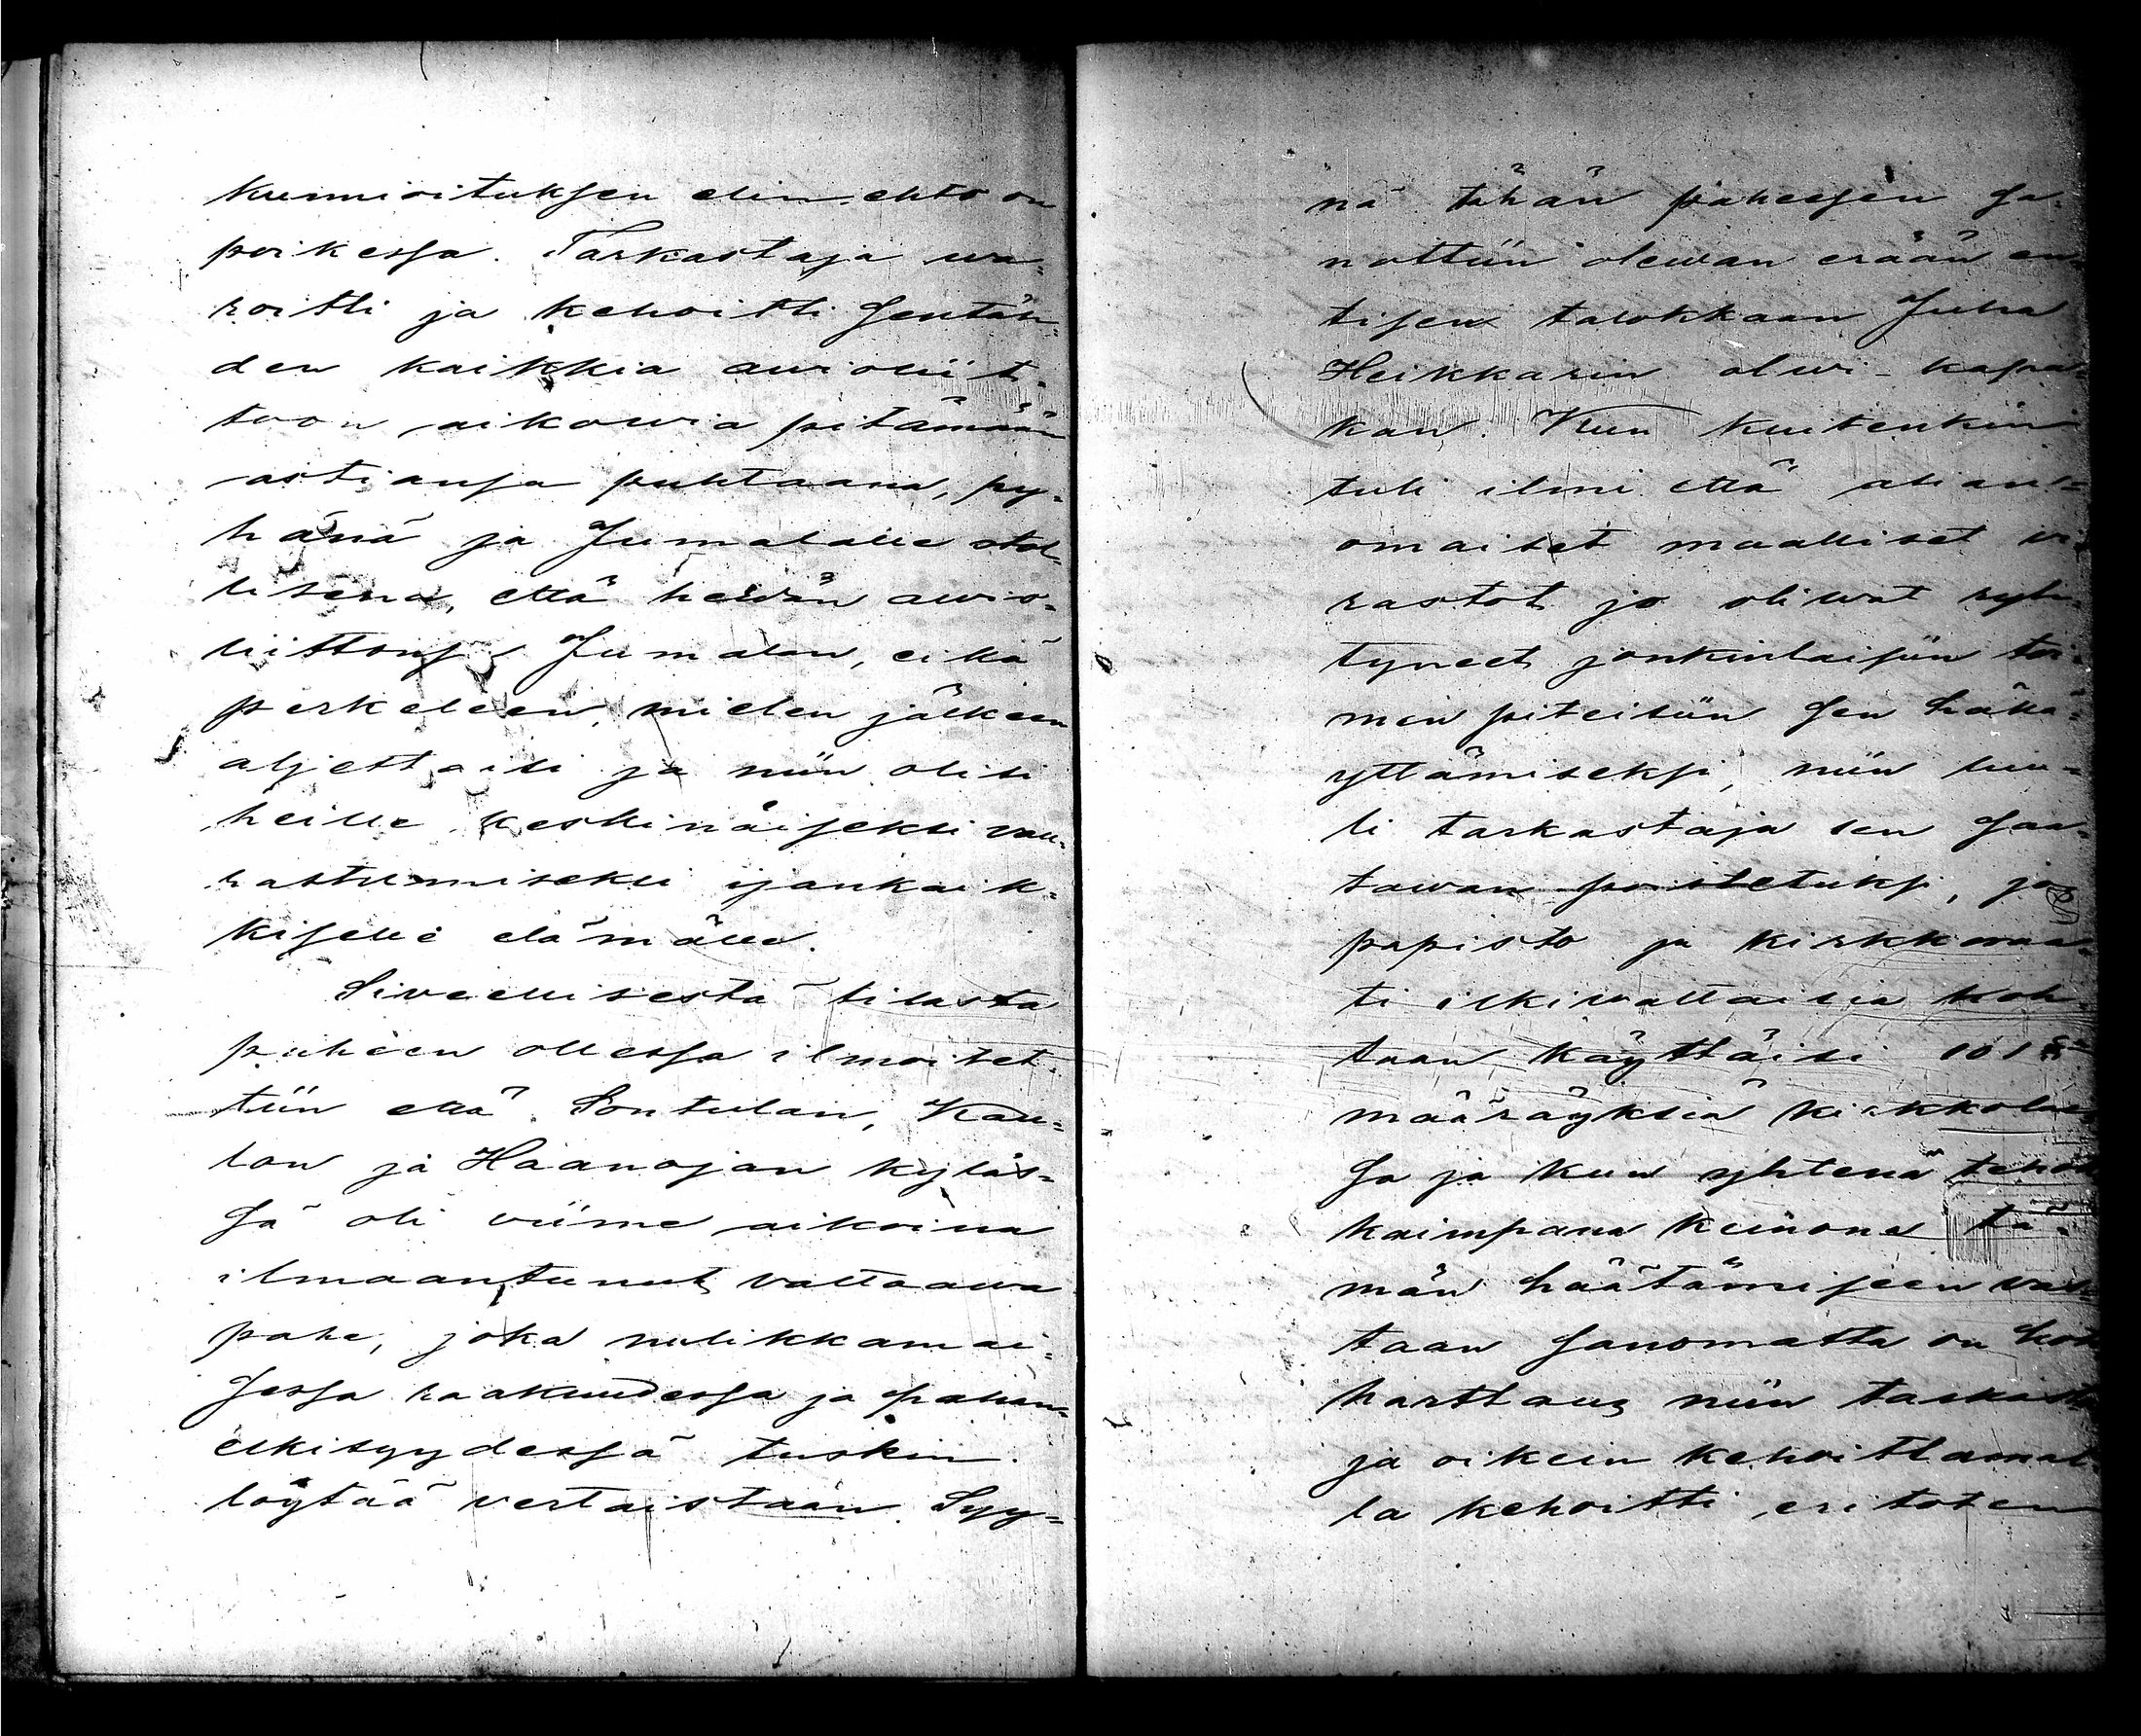 kunnioituksen elin-ehto on
poikessa. Tarkastaja wa-
roitti ja kehoitti sentäh-
den kaikkia awioliit-
toon aikowia pitämään
astiansa puhtaana, py-
hänä ja Jumalalle otol-
lisena, että heidän awio-
liittonsa Jumalan, eikä
perkeleen, mielen jälkeen
aljettaisi ja niin olisi
heille keskinäiseksi val-
rastumiseksi ijankaik-
kiselle elämälle.
Siveellisestä tilasta
puheen ollessa ilmoitet-
tiin että Sontulan, Kau-
lon ja Haanojan kyläs-
sä oli viime aikoina
ilmaantunut valtaawa
pahe, joka nulikkamai-
sessa raakuudessa ja pahan-
elkisyydessä tuskin
löytää vertaistaan. Syy-
nä tähän paheesen sa-
nottiin olewan erään en-
tisen talokkaan Juha
Heikkarin olwi-kapa-
kan. Kun kuitenkin
tuli ilmi että asian-
omaiset maalliset wi-
rastot jo oliwat ryh-
tyneet jonkinlaisiin toi-
menpiteisiin sen häkä-
yttämiseksi, niin luu-
li tarkastaja sen saa-
tawan poistetuksi, jos
papisto ja kirkkoraa-
ti ilkiwaltaisia koh-
taan käyttäisi 101 §
määräyksiä kirkkolais-
sa ja kun yhtenä tehok-
kaimpana keinona tä-
män häätämiseen wal-
taan sanomatta on koti-
hartaus niin tarkasta-
ja oikein kehoittamal-
la kehoitti eritoten